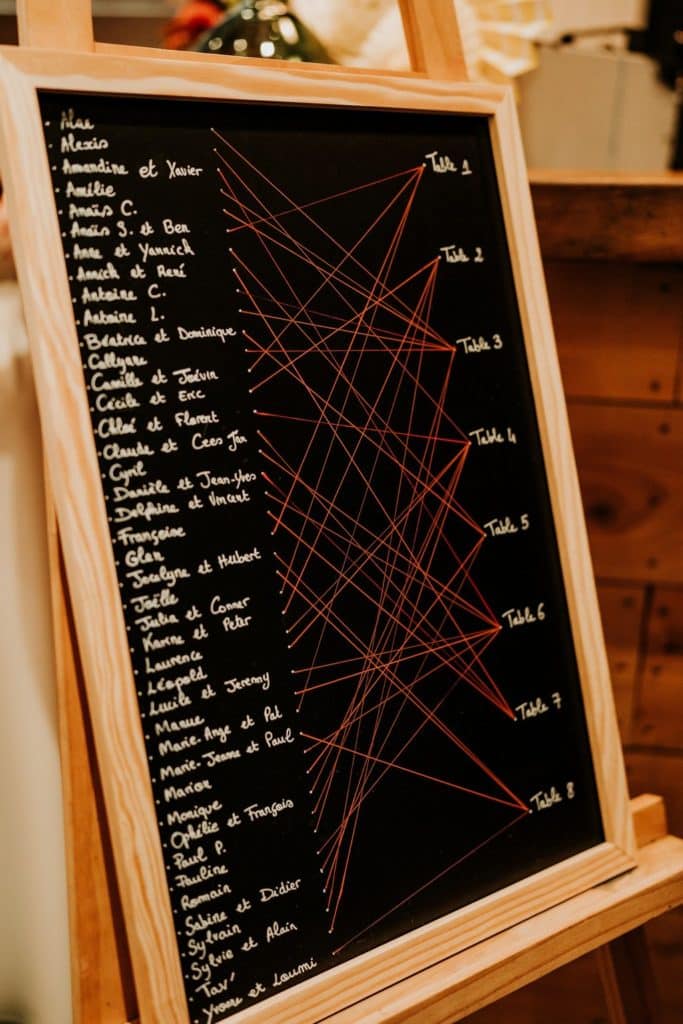 · Alae
· Alexis
· Amandine et Xavier
· Amélie
· Anaïs C.
· Anaïs S. et Ben
· Anne et Yannick
· Annick et René
· Antoine C.
· Antoine L.
· Béatrice et Dominique
· Collyne
· Camille et Join
· Cécile et Eric
· Chloé et Florent
· Claude et Cees Jan
· Cyril
· Danièle et Jean-Yves
· Delphine et Vincent
· Françoise
· Glen
· Jocelyne et Hubert
· Joëlle
· Julia et Conner
· Karine et Peter
· Laurence
· Léopold
· Lucile et Jeremy
· Manue
· Marie-Ange et Pat
· Marie-Jeanne et Paul
· Marion
· Monique
· Ophélie et François
· Paul P.
· Pauline
· Romain
· Sabine et Didier
· Sylvain
· Sylvie et Alain
· Tav'
· Yvonne et Loumi
Table 1
Table 2
Table 3
Table 4
Table 5
Table 6
Table 7
Table 8